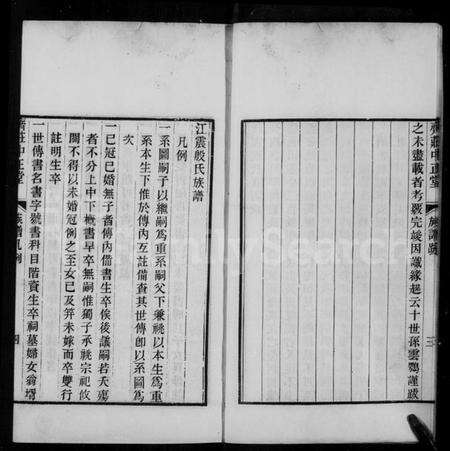 之未盡載者考覈完竣因識緣起云十世孫雲鶚謹跋
族譜跋
三
江震殷氏族譜
凡例
一系圖嗣子以繼嗣為重系嗣父下兼祧以本生為重
系本生下惟於傳內互註備查其世傳卽以系圖為
次
一已冠已婚無子者傳內備書生卒俟後議嗣若夭殤
者不分上中下概書早卒無嗣惟獨子承祧宗祀攸
關不得以未婚冠例之至女已及笄未嫁而卒雙行
註明生卒
一世傳書名書字號書科目階資生卒祠墓婦女翁壻
族譜凡例
四